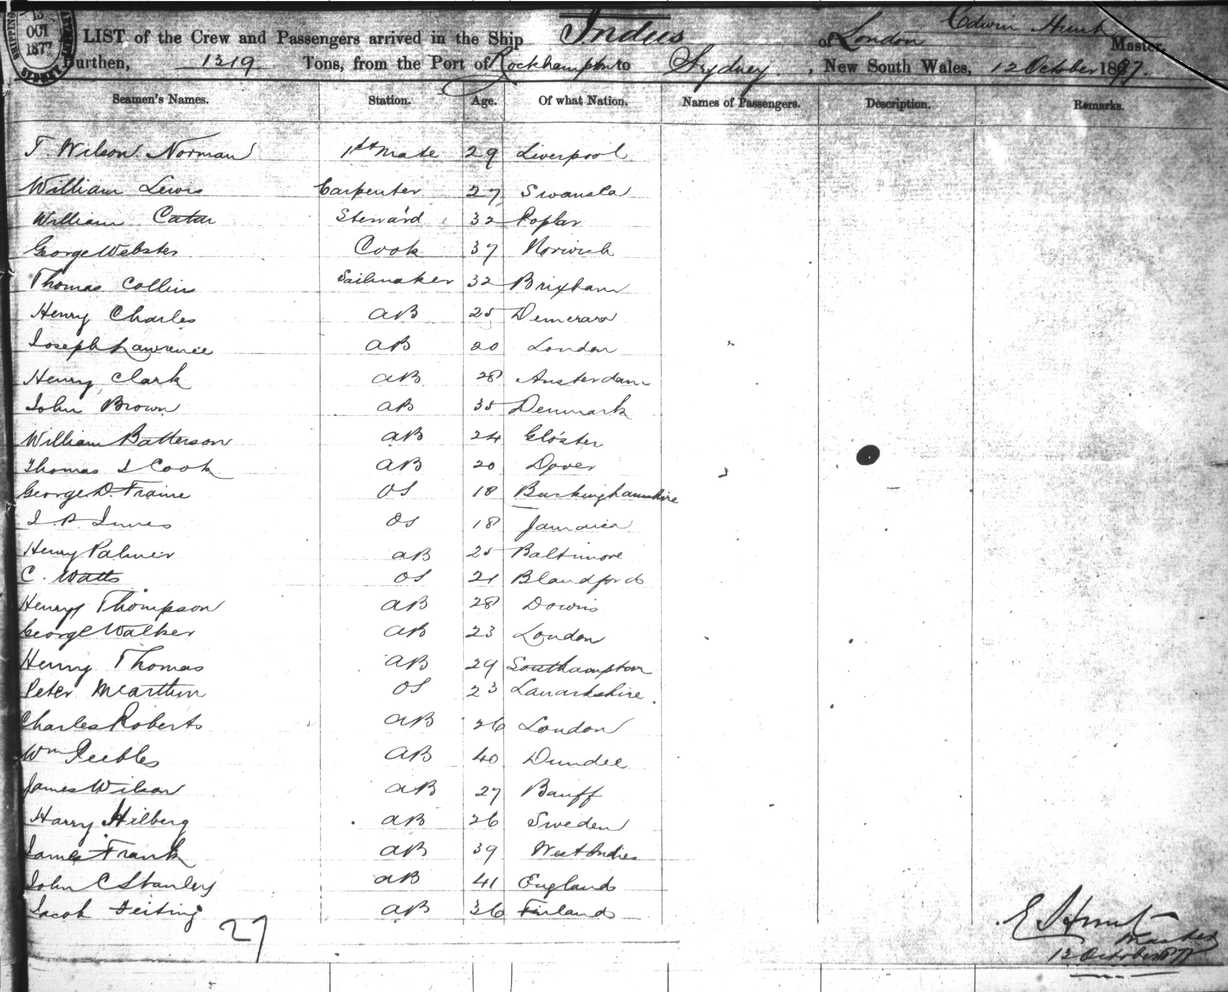 13
OCT
1877
SHIPPING
SYDNEY
LIST of the Crew and Passengers arrived in the Ship Indus of London Edwin Hunt Master,
Burthen, 1319 Tons, from the Port of Rockhampton to Sydney, New South Wales, 12 October 1877.
Seamen's Names. Station. Age. Of what Nation. Names of Passengers. Description. Remarks.
T. Wilson Norman 1st Mate 29 Liverpool
William Lewis Carpenter 27 Swansea
William Cater Steward 32 Poplar
George Webster Cook 37 Norwich
Thomas Collins Sailmaker 32 Brixham
Henry Charles AB 25 Demerara
Joseph Lawrence AB 20 London
Henry Clark AB 28 Amsterdam
John Brown AB 35 Denmark
William Batterson AB 24 Gloster
Thomas J Cook AB 20 Dover
George D. Frame OS 18 Buckinghamshire
J. P. Innes OS 18 Jamaica
Henry Palmer AB 25 Baltimore
C. Watts OS 21 Blandford
Henry Thompson AB 28 Downs
George Walker AB 23 London
Henry Thomas AB 29 Southampton
Peter McArthur OS 23 Lanarkshire
Charles Roberts AB 26 London
Wm Peebles AB 40 Dundee
James Wilson AB 27 Banff
Harry Hilberg AB 26 Sweden
James Frank AB 39 West Indies
John C Stanley AB 41 England
Jacob AB 36 Finland
27
E Hunt
Master
12 October 1877